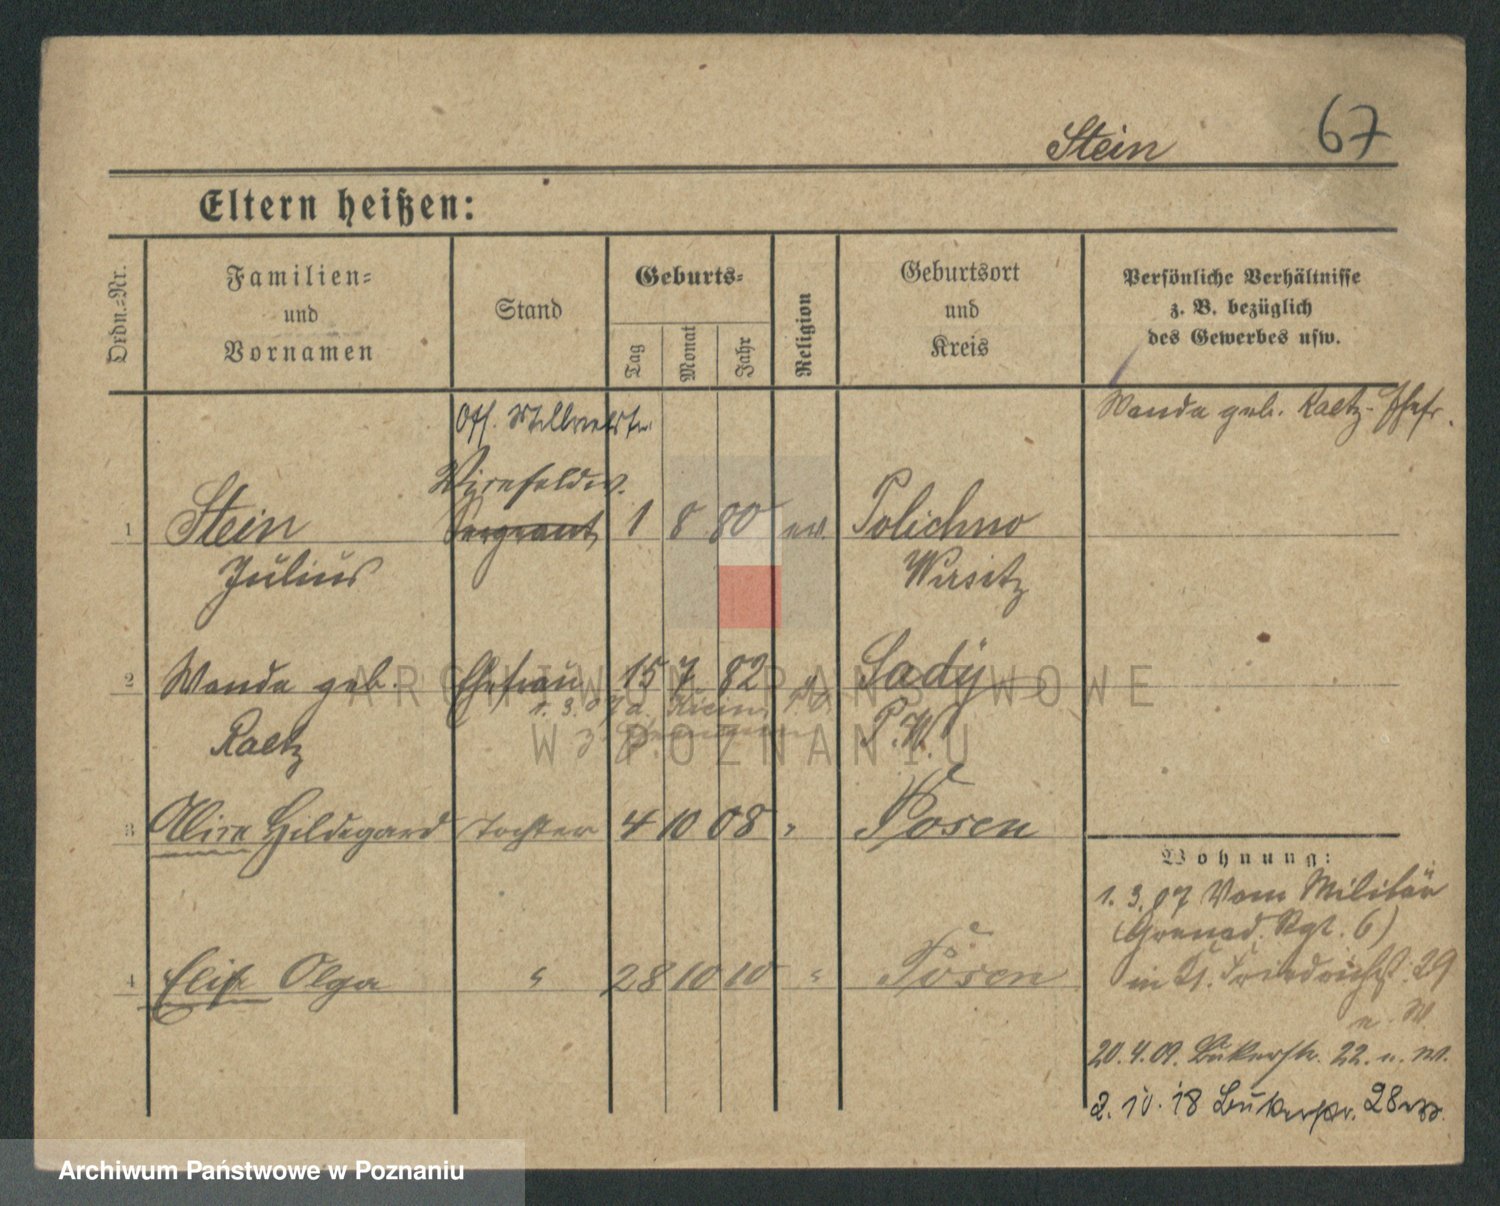 67
Stein
Eltern heißen:
Ordn.-Nr.
Familien-
und
Vornamen
Stand
Geburts-
Tag
Monat
Jahr
Religion
Geburtsort
und
Kreis
Persönliche Verhältnisse
z. B. bezüglich
des Gewerbes usw.
Wanda geb. Raetz - Ehefr.
Vizefeldw.
1 Stein Sergeant 1 8 80 ev. Polichno
Julius Wirsitz
2 Wanda geb. Ehefrau 15 7 82 Sady
1. 3. 07
Raetz P.W.
3 Alice Hildegard Tochter 4 10 08 " Posen
4 Olga " 28 10 10 " Posen
Wohnung:
1. 3. 07 Vom Militär
(Grenad. Rgt. 6)
in St. Friedrichst. 29
n. W.
20. 4. 09. Bukerstr. 22. n. W.
2. 10. 18 Bukerstr. 28
ARCHIWUM PAŃSTWOWE
W POZNANIU
Archiwum Państwowe w Poznaniu